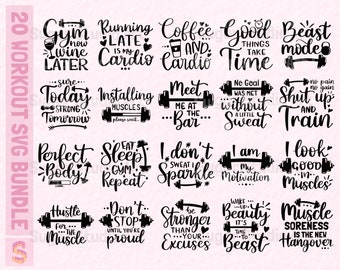 20 WORKOUT SVG BUNDLE
Gym
now
wine
LATER
Running
LATE
is my
Cardio
Coffee
AND
Cardio
Good
THINGS
TAKE
Time
Beast
mode
Sore
Today
STRONG
Tomorrow
Installing
MUSCLES
please wait...
Meet
ME AT THE
Bar
No Goal
WAS MET
without
A LITTLE
Sweat
no pain
no gain
Shut up
AND
Train
Perfect
Body
EAT
SLEEP
GYM
Repeat
I don't
SWEAT I
Sparkle
I am
my
Motivation
I look
GOOD
IN
Muscles
Hustle
FOR THE
Muscle
DON'T
STOP
UNTIL YOU'RE
proud
be
Stronger
THAN
YOUR
Excuses
WAKE UP
Beauty
IT'S
TIME TO
BEAST
Muscle
SORENESS
IS THE NEW
Hangover